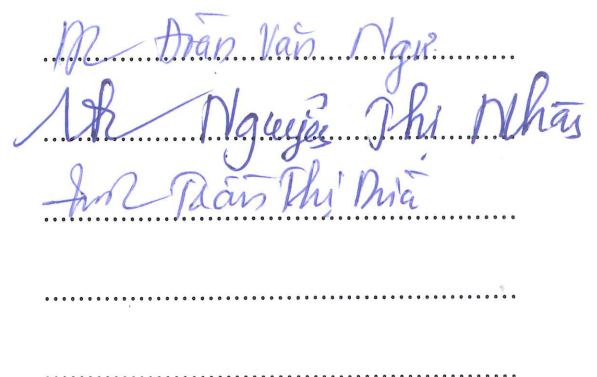 Trần Văn Ngư
Nguyễn Thị Nhãn
Trần Thị